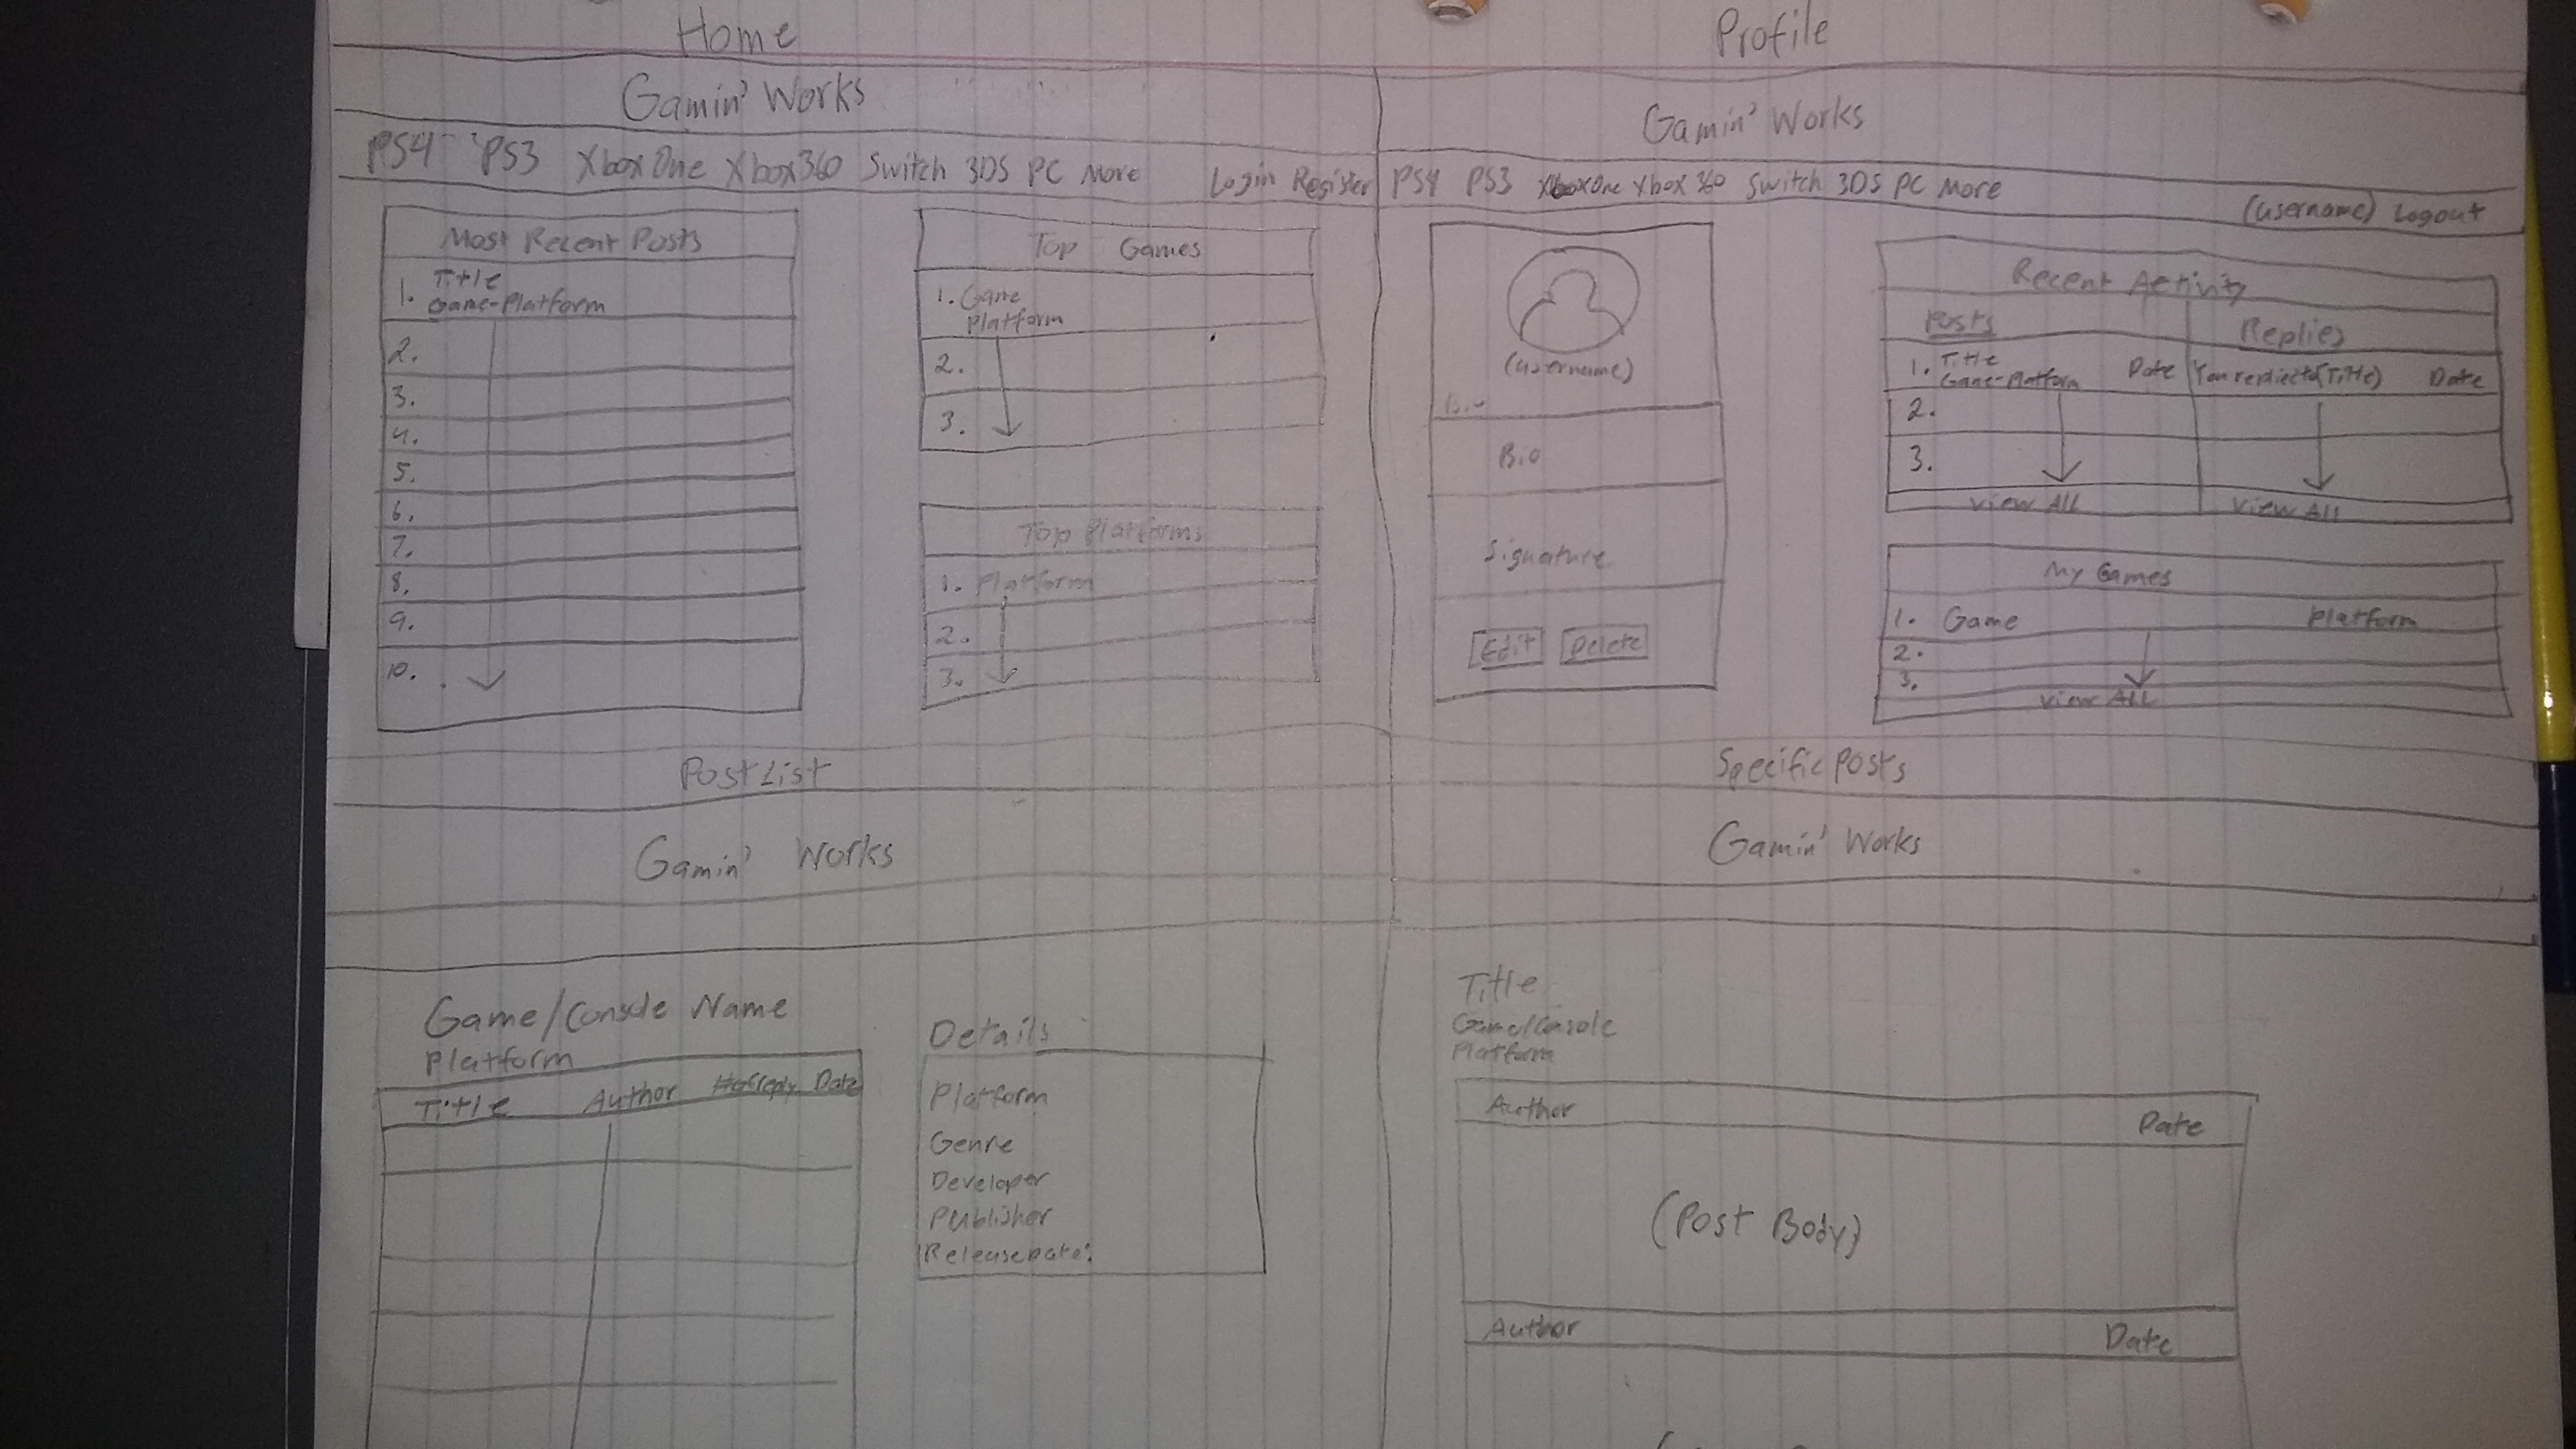 Home
Gamin' Works
PS4 PS3 Xbox One Xbox360 Switch 3DS PC More Login Register
Most Recent Posts
1. Title
Game-Platform
2.
3.
4.
5.
6.
7.
8.
9.
10.
Top Games
1. Game
Platform
2.
3.
Top Platforms
1. Platform
2.
3.
Profile
Gamin' Works
PS4 PS3 Xbox One Xbox 360 Switch 3DS PC More
(username) Logout
(username)
Bio
Bio
Signature
Edit Delete
Recent Activity
Posts Replies
1. Title
Game-Platform Date You replied to (Title) Date
2.
3.
View All View All
My Games
1. Game Platform
2.
3.
View All
Post List
Gamin' Works
Game/Console Name
Platform
Title Author #ofreply Date
Details
Platform
Genre
Developer
Publisher
Release Date:
Specific Posts
Gamin' Works
Title
Game/Console
Platform
Author Date
(Post Body)
Author Date